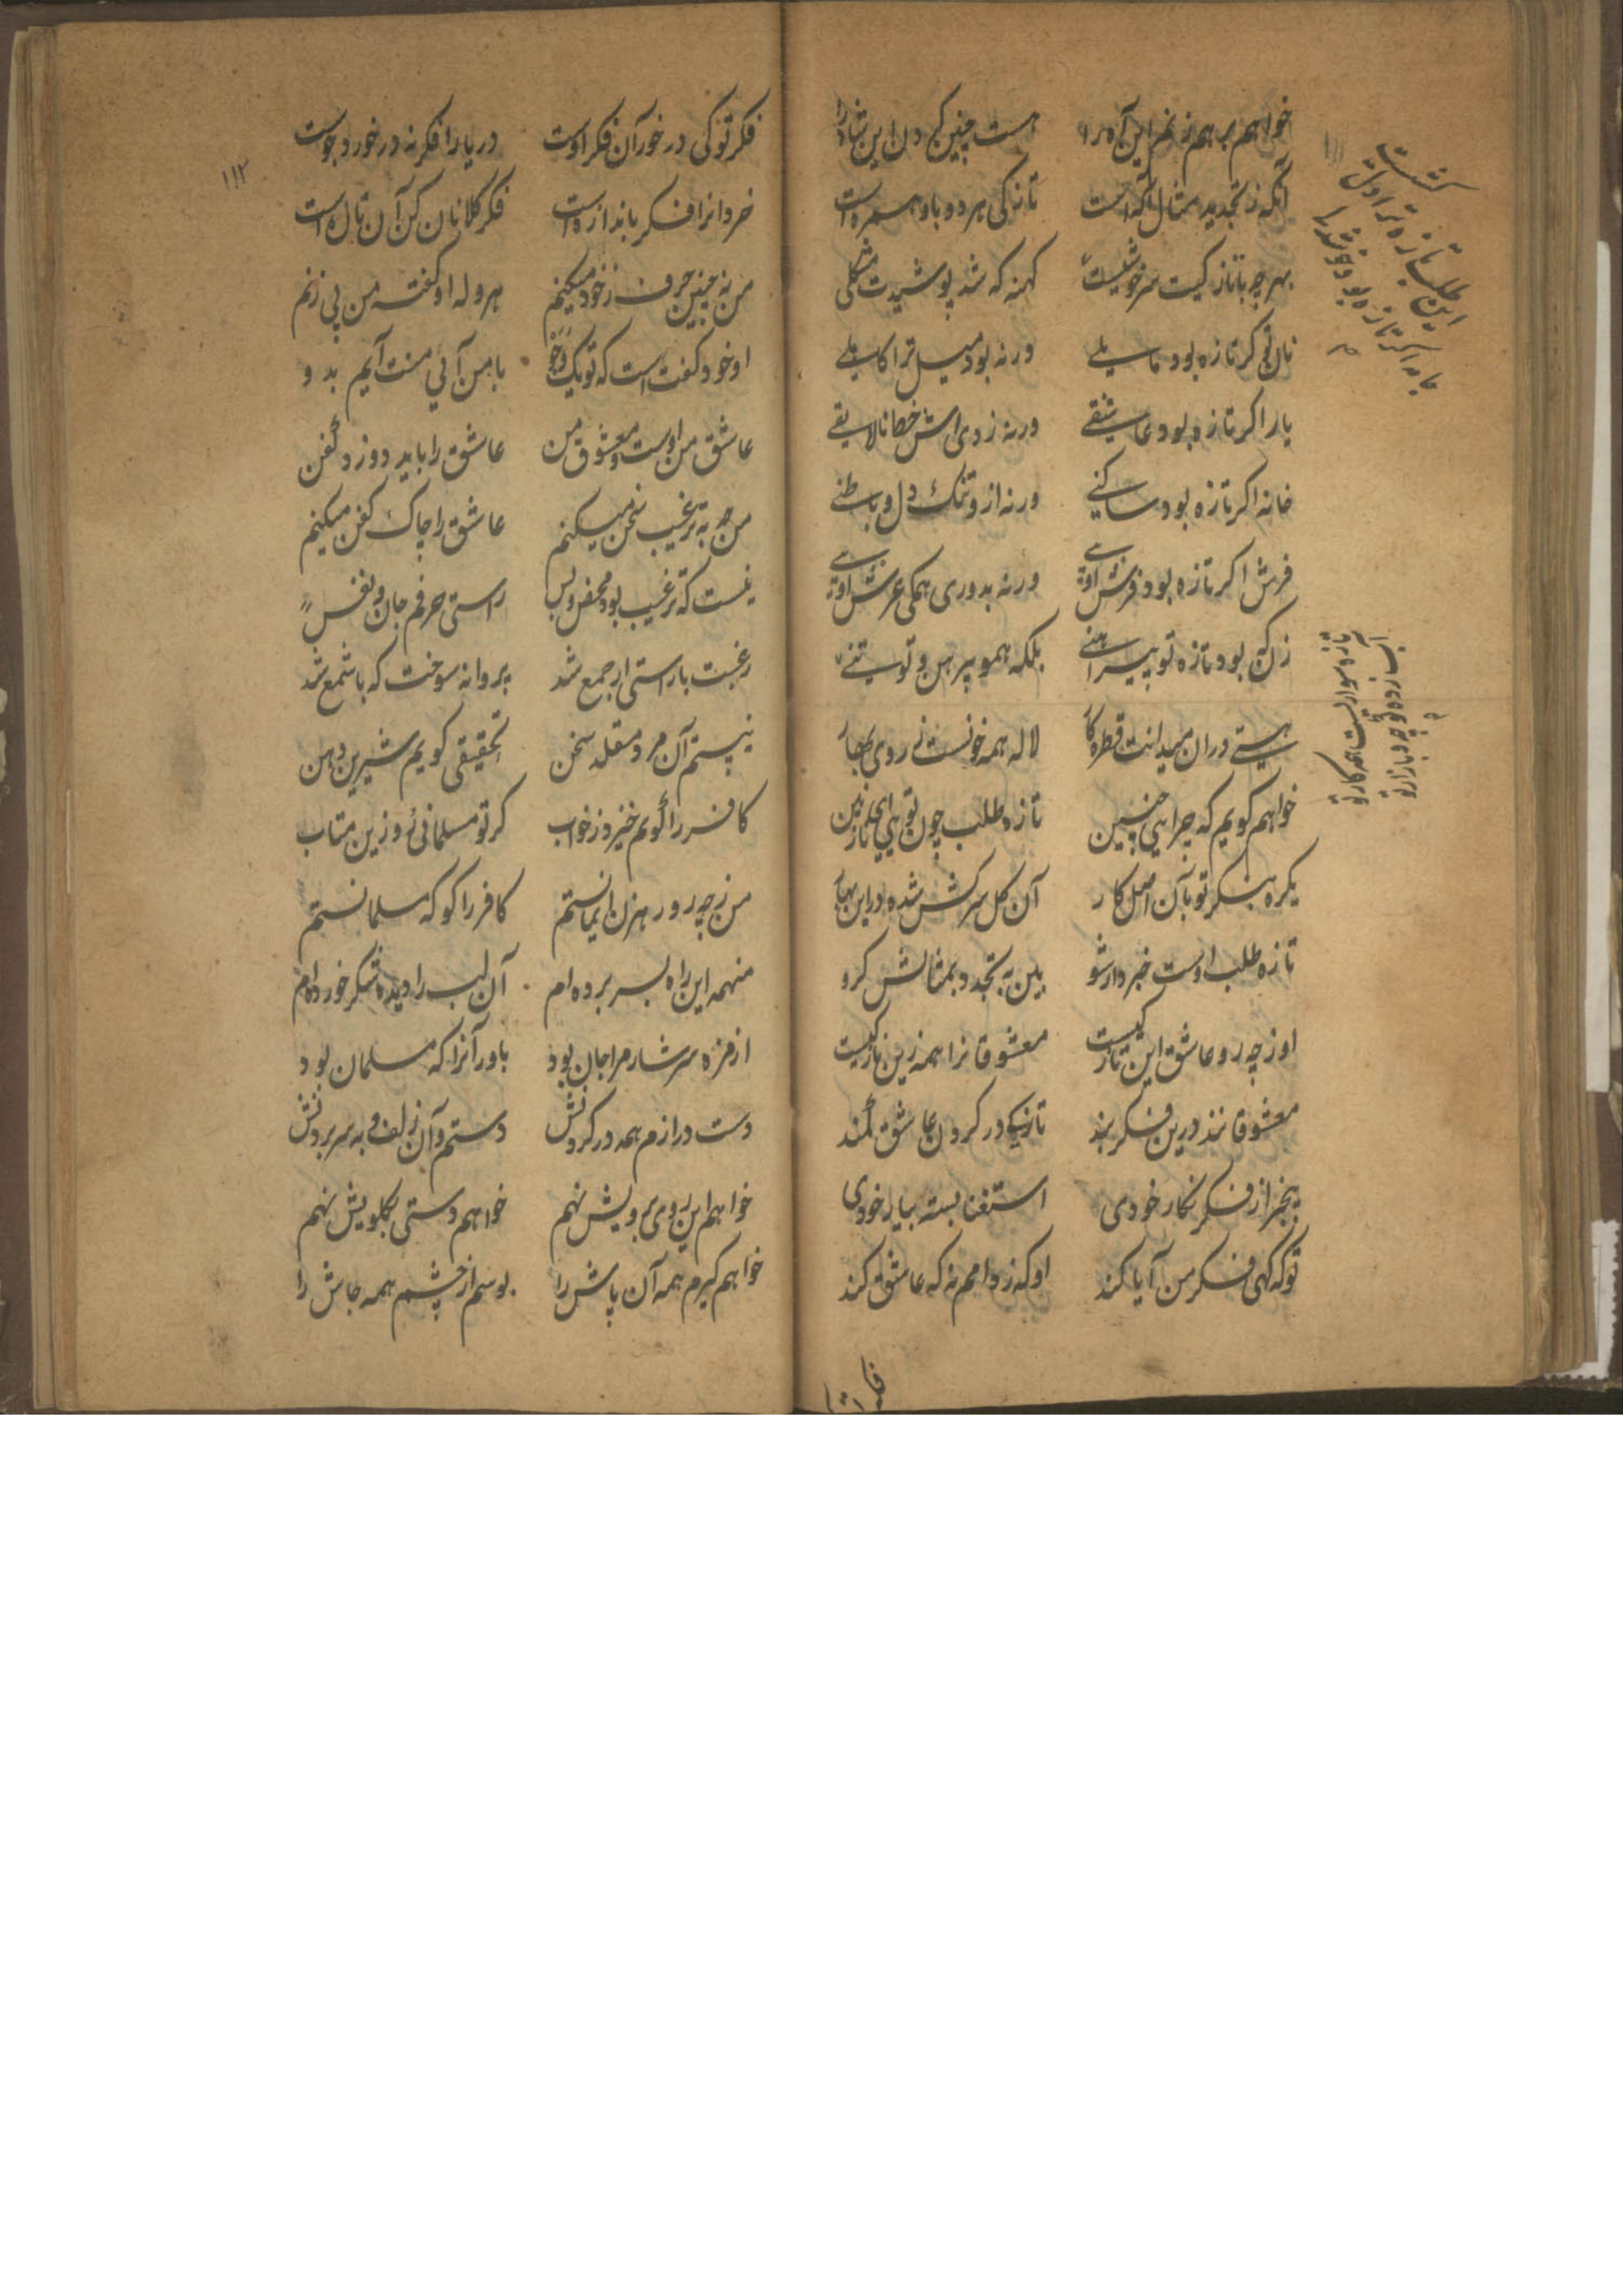 خواهم بهم زنم این
است چنین کی دل این
آنکه ز تجدید مثال آکه است
تازکی هر دو باو همره است
بهر چه با تازکیت سرخوشیست
کهنه که شد پوشیدت مشکلی
نان تو کر تازه بود مایلے
ورنه بود میل ترا کاهلے
یار اکر تازه بود عاشقے
ورنه ز وی اش خطا نالایقے
خانه اکر تازه بود ساکنے
ورنه ازو تنک دل و باطنے
فرش اکر تازه بود فرش
ورنه بدوری همکی عرش
زانکه بود تازه تو پیراهنے
بلکه همو پیرهن و تو تنے
هستے دران میدانت قطره
لاله همه خونست نے روی
خواهم کویم که چراهی چنین
تازه طلب چون تو هی ای نازنین
یکره بنکر تو بآن اصل کار
آن کل سرکش شده در این بهار
تازه طلب اوست خبردار شو
بین به تجدد بمثالش کرو
او ز چه رو عاشق این تازکیست
معشوقانرا همه زین تازکیست
معشوقانند درین فکر بند
تا نیکه در کردن عاشق کمند
بیخبر از فکر نکار خودی
استغنا بسته بیار خودی
تو که کهی فکر من آیا کند
او که ز دامم نه که عاشق کند
تازه سواریست همه کار تو
فکر تو
۱۱۲
فکر تو کی در خور آن فکر اوست
دریا را فکر نه در خورد جوست
خردانرا فکر باندازه است
فکر کلانان کن آن تازه است
من نه چنین حرف ز خود میکنم
هروله او کفته من پی زنم
او خود کفت است که تو یک
با من آئی منت آیم بدو
عاشق من اوست و معشوق من
عاشق را باید دوزد کفن
من چه به ترغیب سخن میکنم
عاشق را چاک کفن میکنم
نیست که ترغیب بود محض و بس
راستی حرفم جان و نفس
رغبت با راستی ار جمع شد
پروانه سوخت که با شمع شد
نیستم آن مرد مقلد سخن
تحقیقی کویم شیرین دهن
کافر را کویم خیز و ز خواب
کر تو مسلمانی رو زین متاب
من ز چه رو رهزن ایمانستم
کافر را کو که مسلمانستم
منهمه این راه بسر برده ام
آن لب را دیده شکر خورده ام
از مزه سرشار مرا جان بود
باور آنرا که مسلمان بود
دست درازم همه در کردنش
دستم و آن زلف و به سر بردنش
خواهم این روی برویش نهم
خواهم دستی بکلویش نهم
خواهم کیرم همه آن پاش را
بوسم از چشم همه جاش را